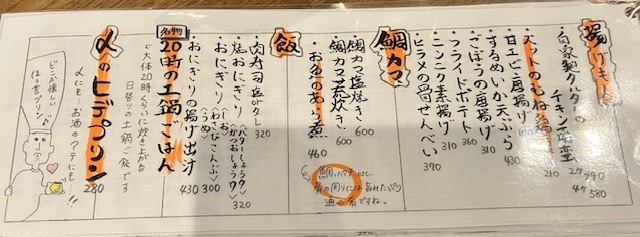 揚げもん
自家製タルタルの
チキン南蛮 2ケ 290
4ケ 580
スットのむね揚 210
甘エビ唐揚げ 430
するめいか天ぷら 490
ごぼうの唐揚げ 310
フライドポテト 360
ニンニク素揚げ 310
ヒラメの骨せんべい 390
鯛カマ
鯛カマ塩焼き 600
鯛カマ煮炊き 600
お魚のあら煮 460
鯛、ハマチ etc
骨の周りには旨みたっぷり
通の肴ですね。
飯
肉寿司 塩orタレ 320
焼おにぎり〈バターしょうゆ〉
〈かつおしょうゆ〉 320
おにぎり〈わさびこんぶ〉
〈うめ〉 300
おにぎりの揚げ出汁 430
名物
20時の土鍋ごはん
大体20時くらいに炊き上がる
日替りの土鍋ご飯です
〆のヒデプリン 280
〆にも…お酒のアテにも…!
どこか懐しい
ほろ苦プリン